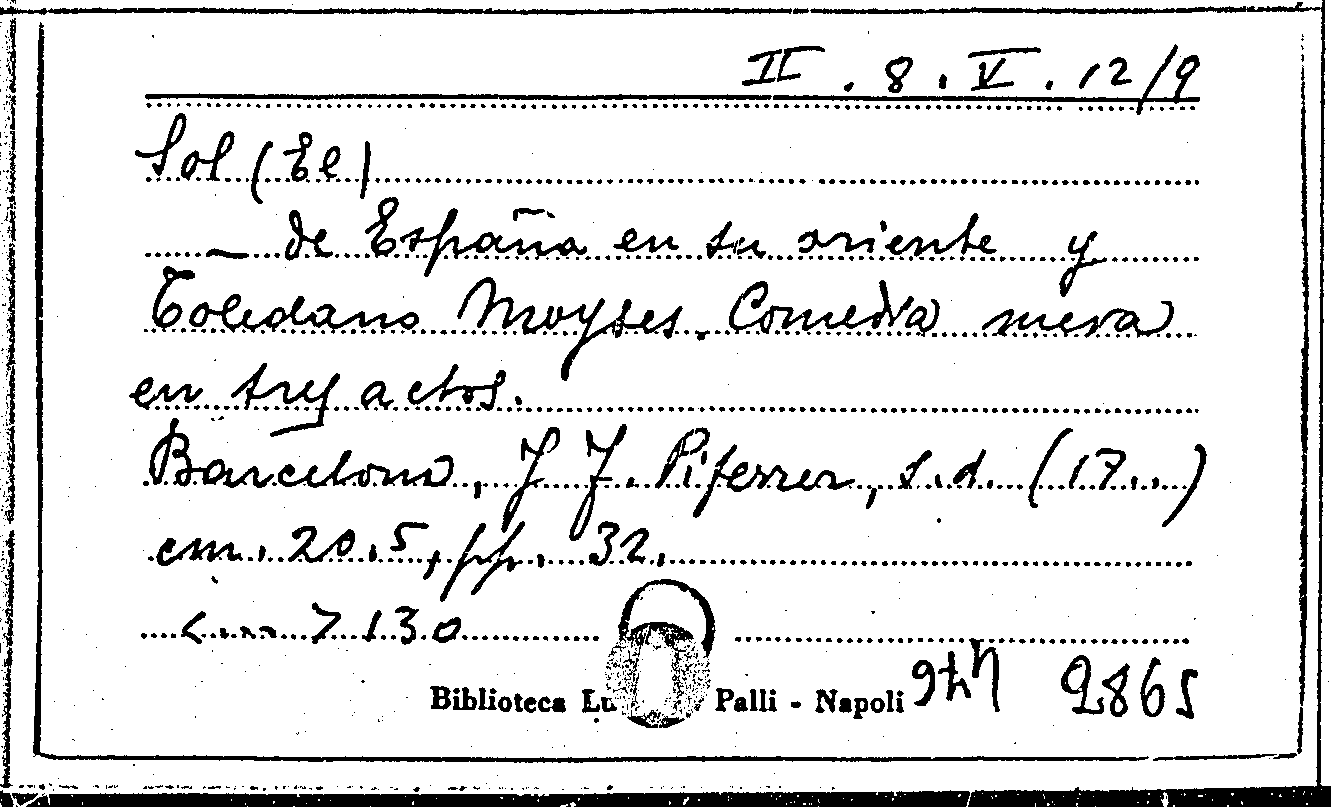 II . 8 . V . 12/9
Sol (El)
— de España en su oriente y
Toledano Moyses. Comedia nueva
en tres actos.
Barcelona, J. J. Piferrer, s.d. (17..)
cm. 20.5, pp. 32.
7130
Biblioteca Palli - Napoli
2865